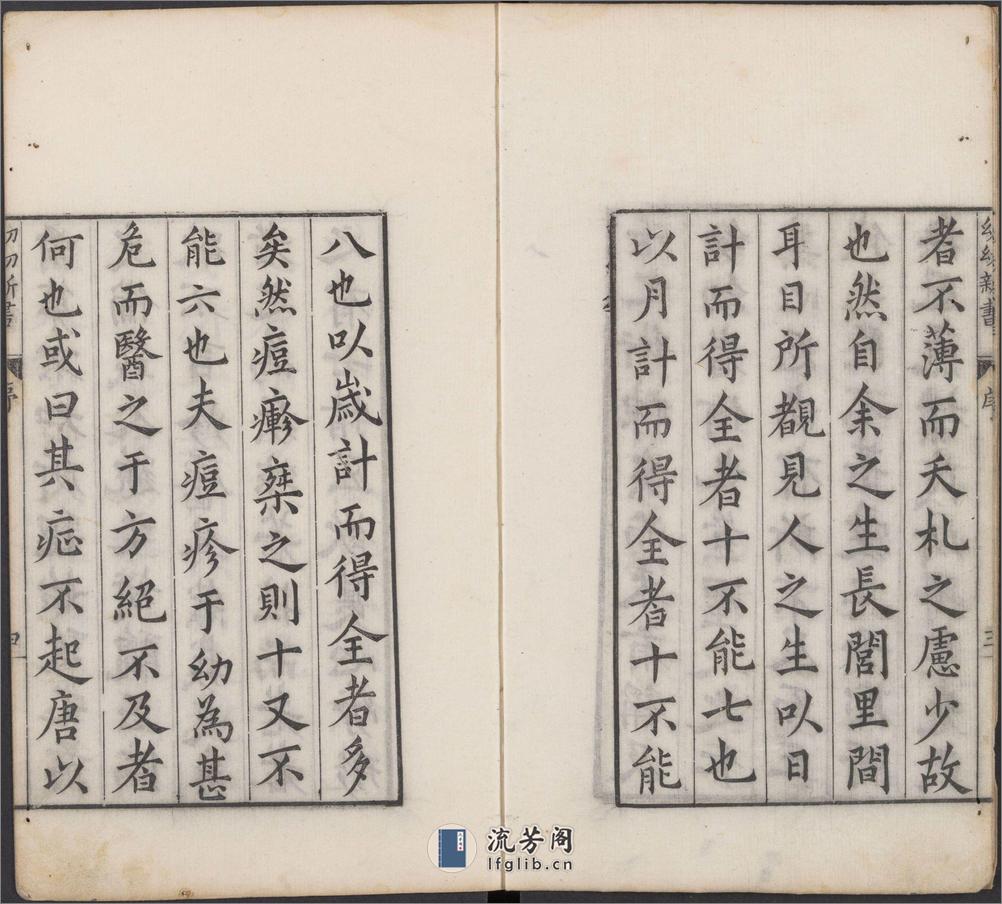 幼幼新書
序
三
者不薄而夭札之慮少故
也然自余之生長閭里間
耳目所覩見人之生以日
計而得全者十不能七也
以月計而得全者十不能
八也以歲計而得全者多
矣然痘瘮槩之則十又不
能六也夫痘疹于幼為甚
危而醫之于方絕不及者
何也或曰其症不起唐以
幼幼新書
序
四
流芳阁
lfglib.cn